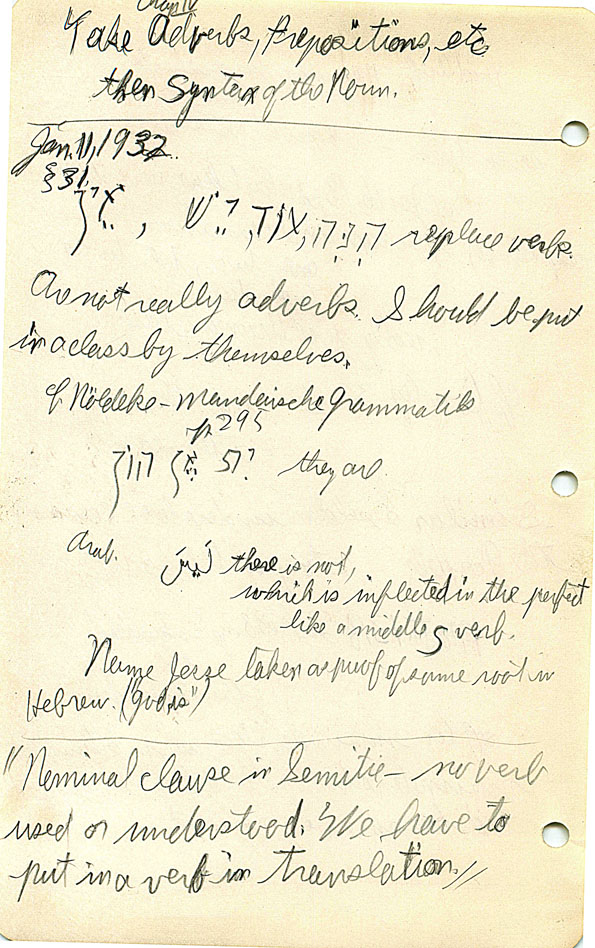 Chap IV
Take Adverbs, Prepositions, etc
then Syntax of the Noun.
Jan. 11, 1932.
§31.
אַיִן, יֵשׁ, עוֹד, הִנֵּה replace verbs.
Are not really adverbs. Should be put
in a class by themselves.
cf Nöldeke - Mandäische Grammatik
p 295
they are
Arab. لَيْسَ there is not,
which is inflected in the perfect
like a middle verb.
Name Jesse taken as proof of same root in
Hebrew. ("god is")
"Nominal clause in Semitic - no verb
used or understood. We have to
put in a verb in translation."